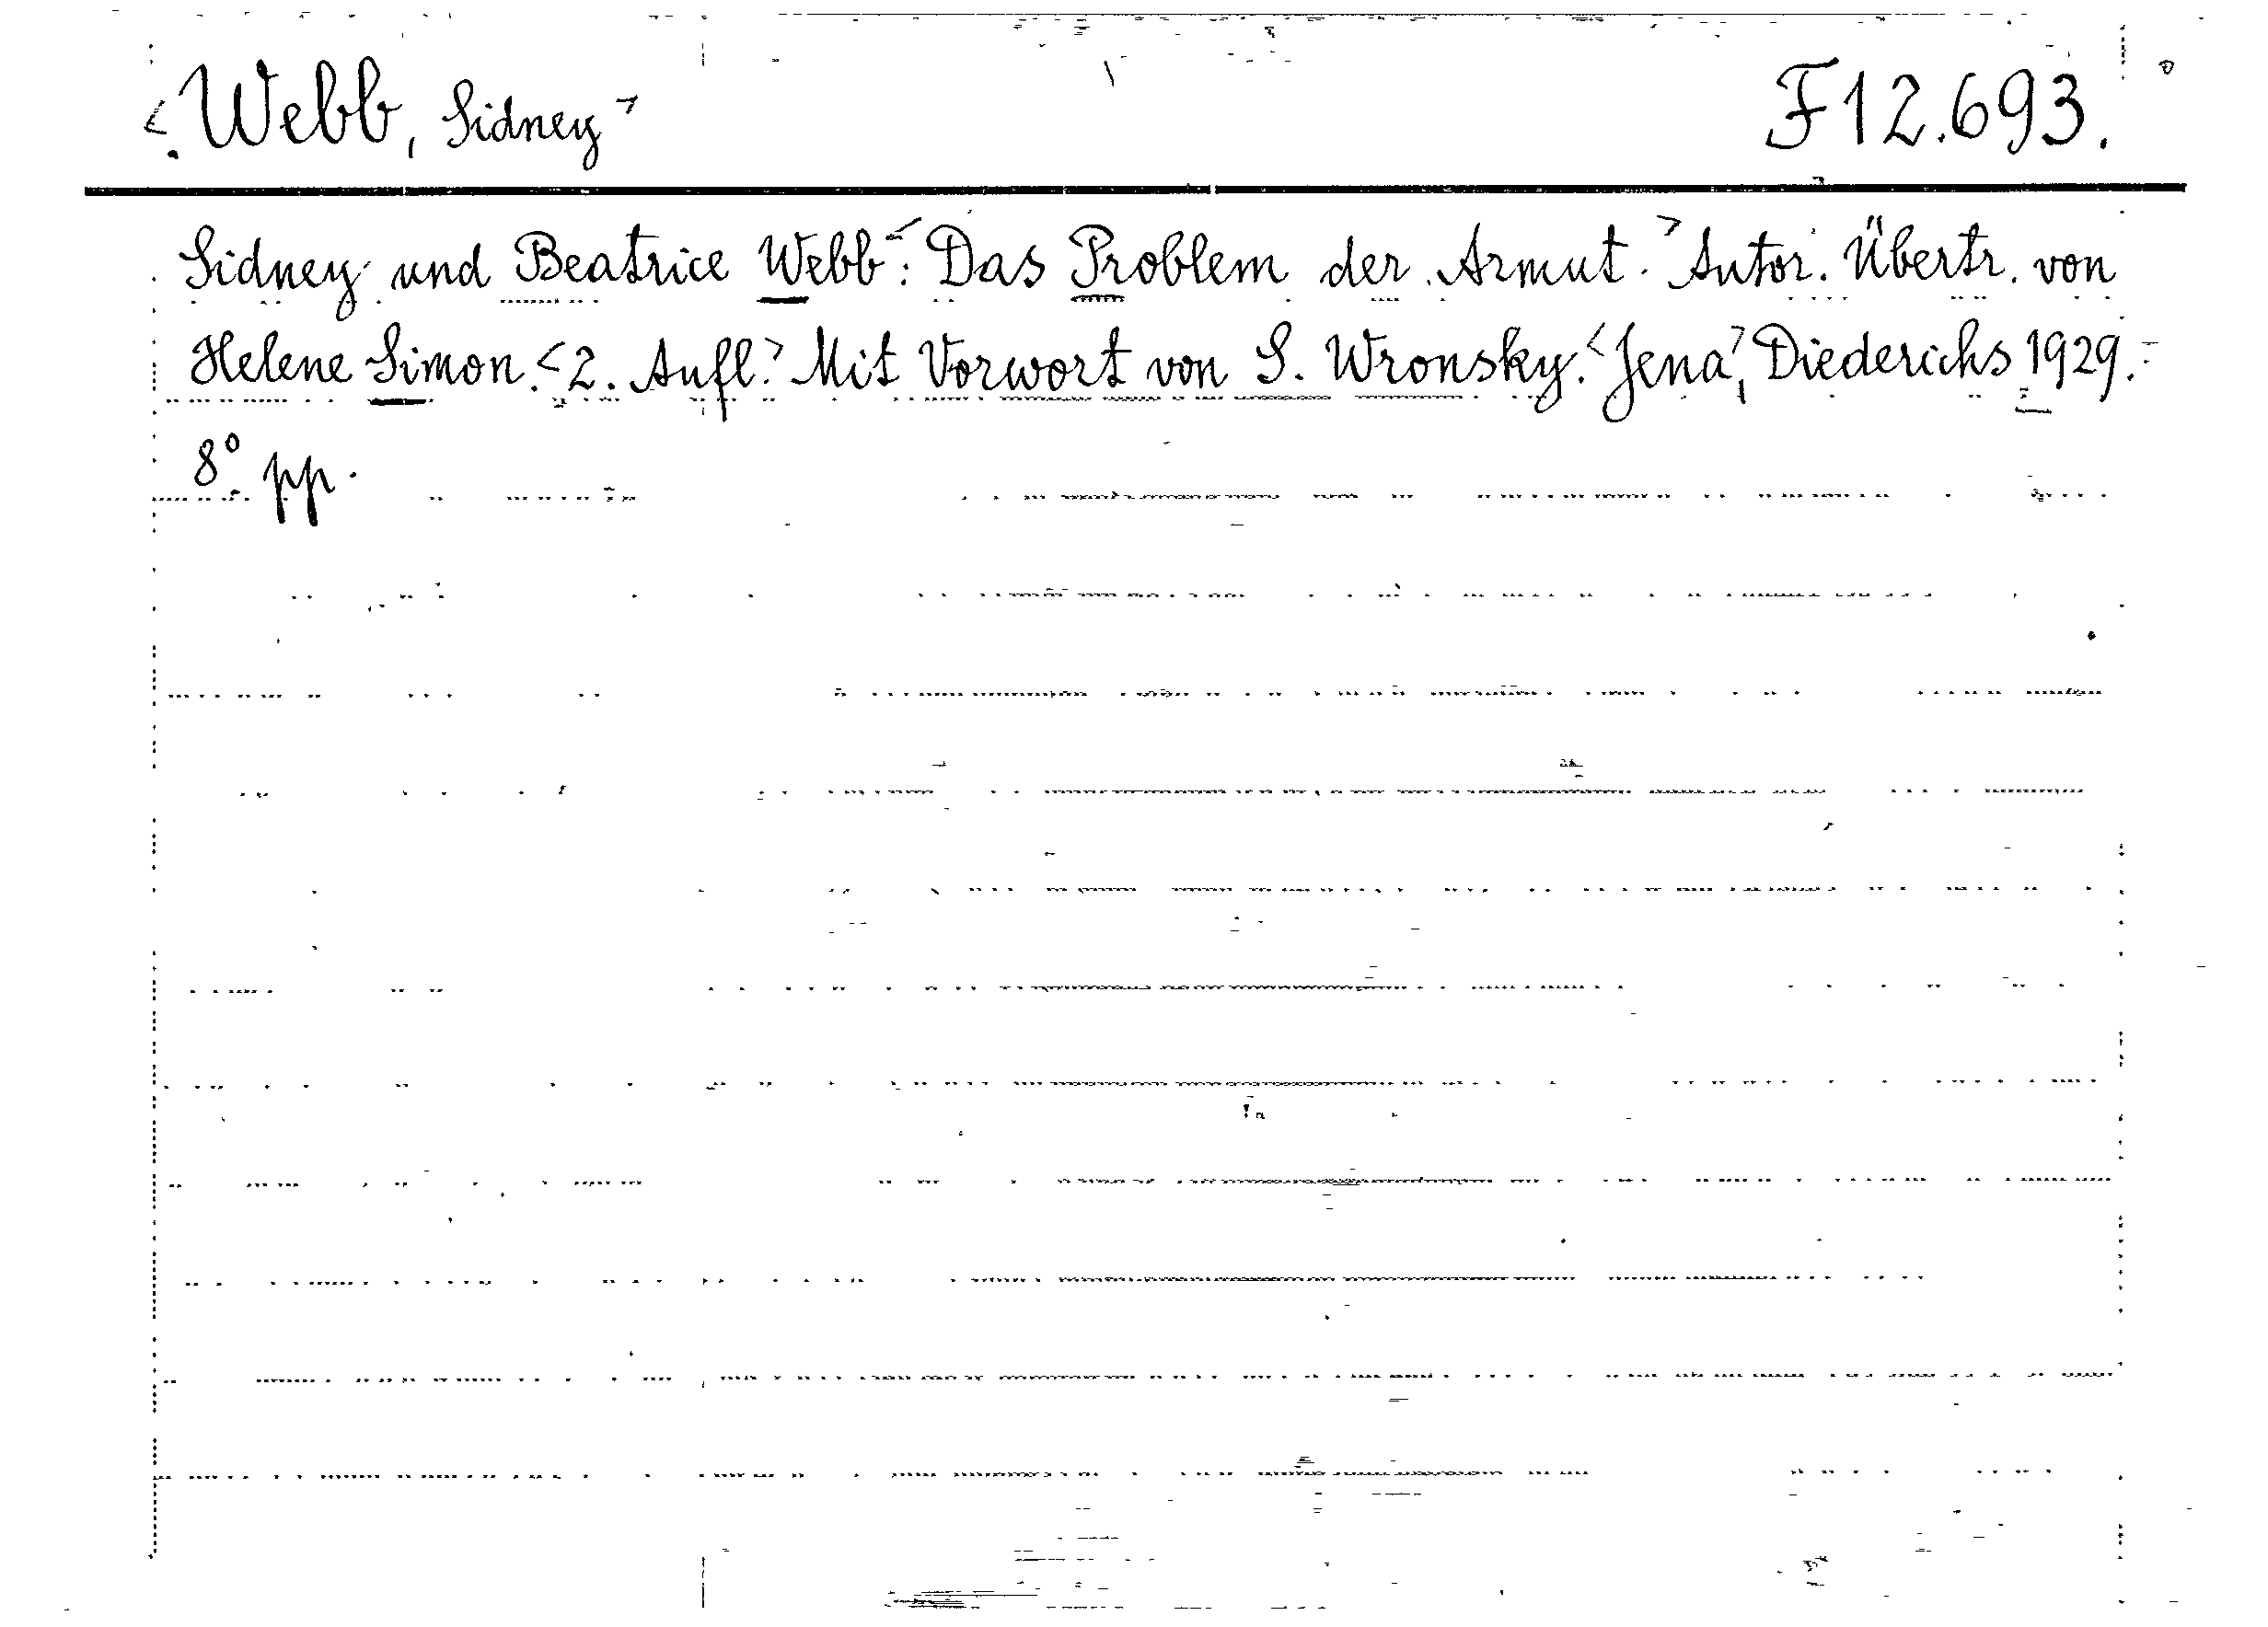 <Webb, Sidney> F12.693.
Sidney und Beatrice Webb<: Das Problem der Armut.> Autor. Übertr. von
Helene Simon. <2. Aufl.> Mit Vorwort von S. Wronsky. <Jena>, Diederichs 1929.
8° pp.